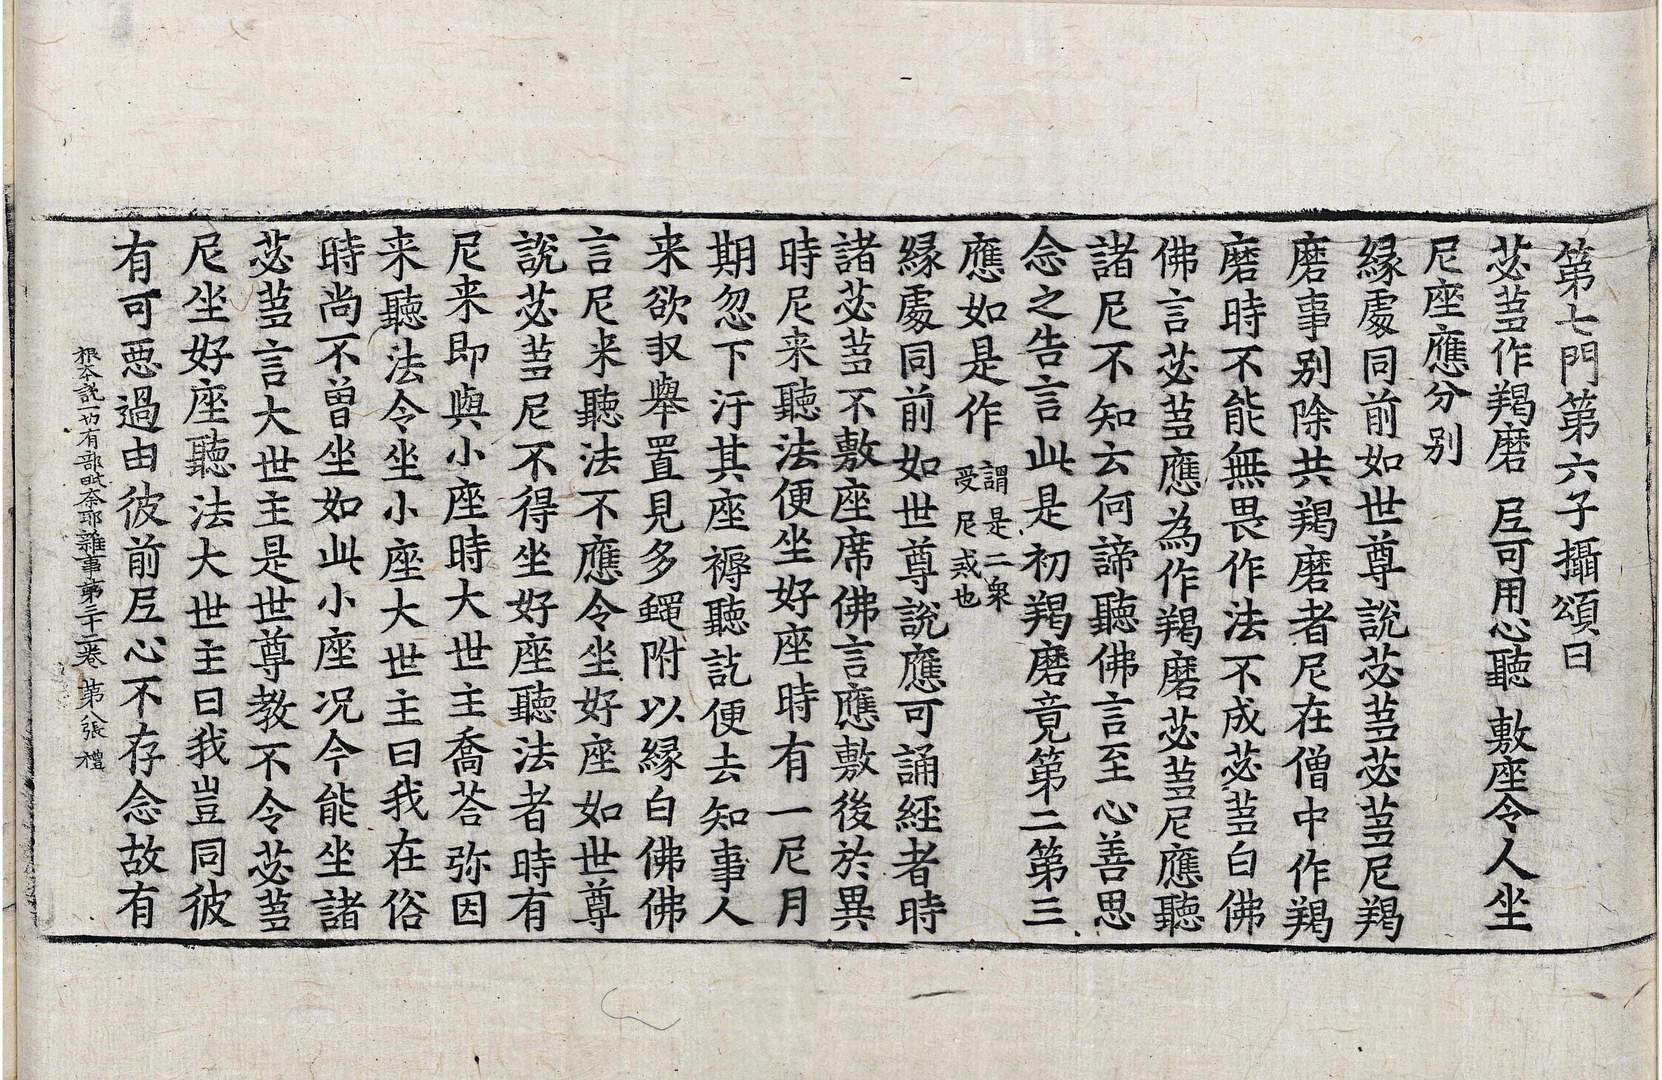 第七門第六子攝頌曰
苾蒭作羯磨 尼可用心聽 敷座令人坐
尼座應分别
緣處同前如世尊說苾蒭苾蒭尼羯
磨事别除共羯磨者尼在僧中作羯
磨時不能無畏作法不成苾蒭白佛
佛言苾蒭應為作羯磨苾蒭尼應聽
諸尼不知云何諦聽佛言至心善思
念之告言此是初羯磨竟第二第三
應如是作 謂是二衆
受尼戒也
緣處同前如世尊說應可誦經者時
諸苾蒭不敷座席佛言應敷後於異
時尼来聽法便坐好座時有一尼月
期忽下汙其座褥聽訖便去知事人
来欲収舉置見多蠅附以緣白佛佛
言尼来聽法不應令坐好座如世尊
說苾蒭尼不得坐好座聽法者時有
尼来即與小座時大世主喬荅弥因
来聽法令坐小座大世主曰我在俗
時尚不曽坐如此小座况今能坐諸
苾蒭言大世主是世尊教不令苾蒭
尼坐好座聽法大世主曰我豈同彼
有可惡過由彼前尼心不存念故有
根本說一切有部毗奈耶雜事第三十二卷 第八張 禮